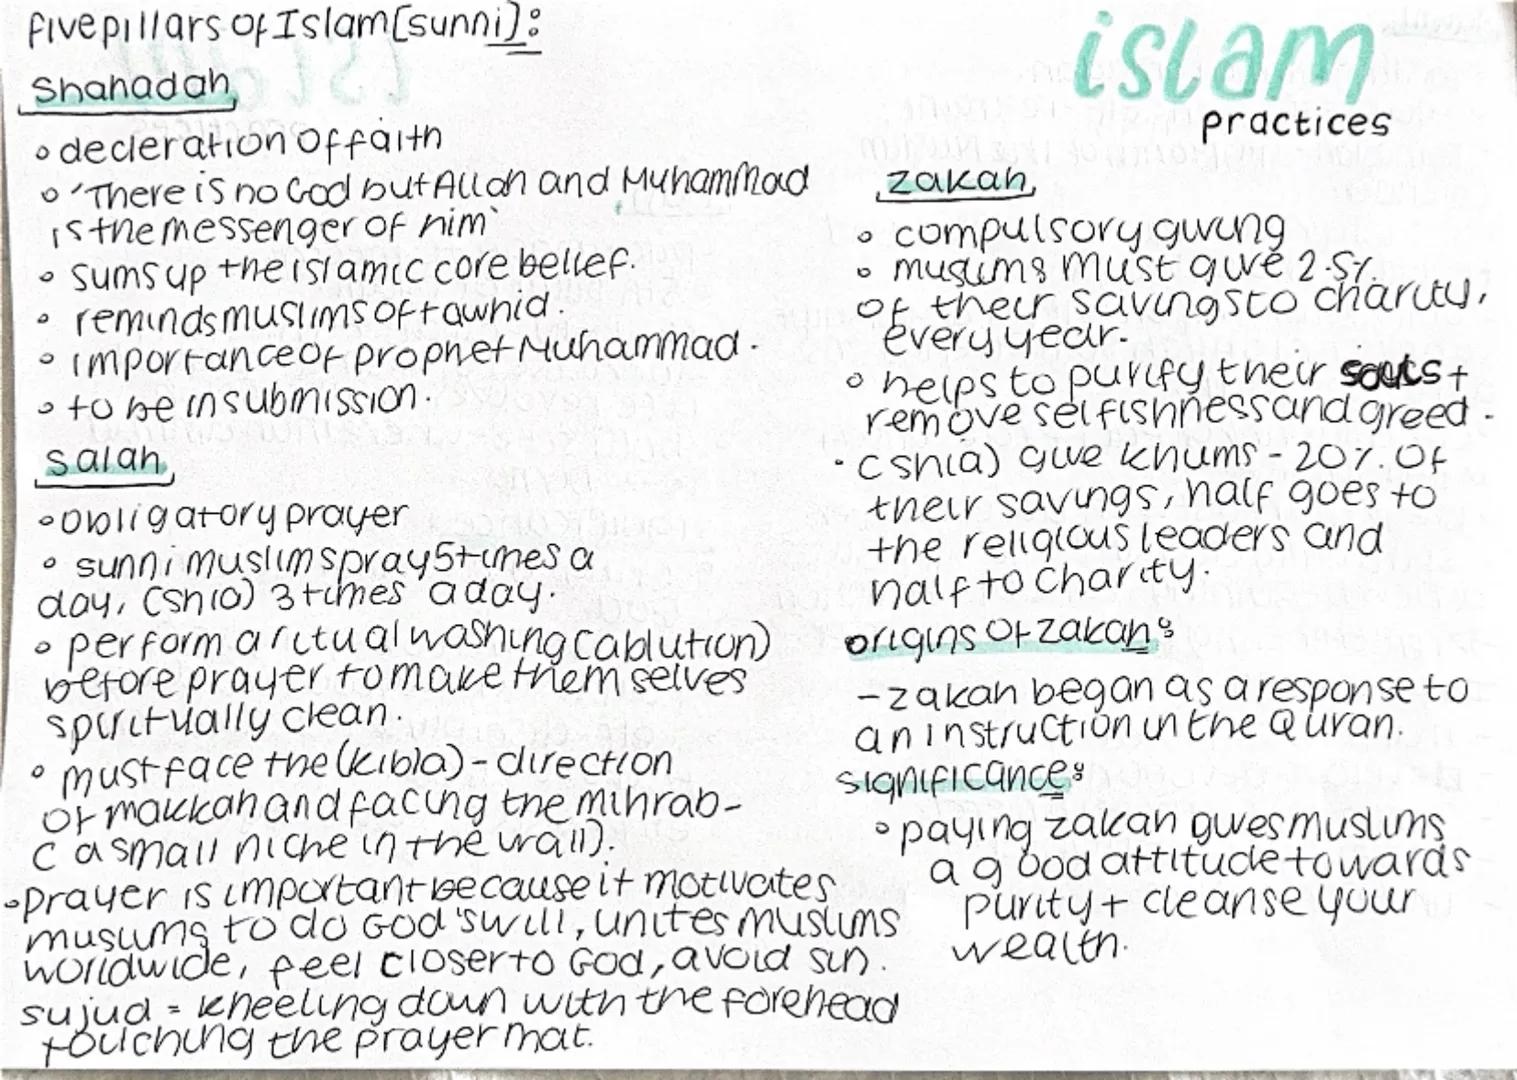 five pillars of Islam [sunni]:
Shahadah
• decleration of faith
• 'There is no God but Allah and Muhammad
is the messenger of him'
• sums up the islamic core belief.
• reminds muslims of tawhid.
• importance of prophet Muhammad.
• to be in submission.
Salah
• obligatory prayer
• sunni muslims pray 5 times a
day, (shia) 3 times a day.
• perform a ritual washing (ablution)
before prayer to make themselves
spiritually clean.
• must face the (kibla) - direction
of makkah and facing the mihrab -
( a small niche in the wall).
• Prayer is important because it motivates
muslims to do God's will, unites muslims
worldwide, feel closer to God, avoid sin.
sujud = kneeling down with the forehead
touching the prayer mat.
islam
practices
zakah
• compulsory giving
• muslims must give 2.5%
of their savings to charity,
every year.
• helps to purify their souls +
remove selfishness and greed.
• (shia) give khums - 20% of
their savings, half goes to
the religious leaders and
half to charity.
origins of zakah:
- zakah began as a response to
an instruction in the Quran.
significance:
• paying zakah gives muslims
a good attitude towards
purity + cleanse your
wealth.